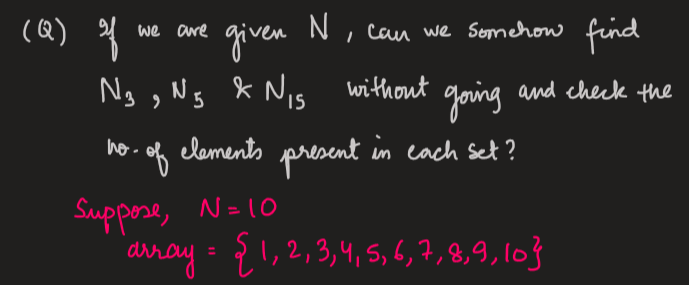 (Q) If we are given N, can we somehow find
N₃, N₅ & N₁₅ without going and check the
no. of elements present in each set?
Suppose, N=10
array = {1,2,3,4,5,6,7,8,9,10}